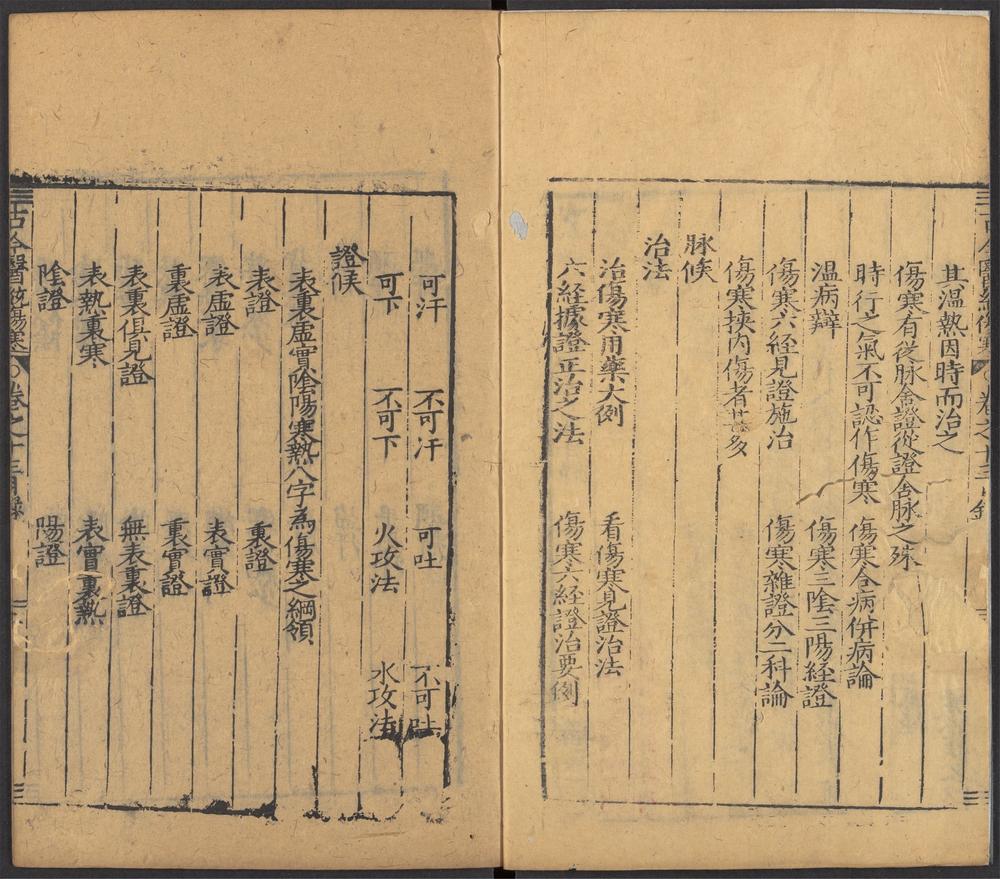 其溫熱因時而治之
傷寒有從脉舍證從證舍脉之殊
時行之氣不可認作傷寒 傷寒合病併病論
溫病辯 傷寒三陰三陽經證
傷寒六經見證施治 傷寒雜證分二科論
傷寒挾內傷者甚多
脉候
治法
治傷寒用藥大例 看傷寒見證治法
六經據證正治之法 傷寒六經證治要例
可汗 不可汗 可吐 不可吐
可下 不可下 火攻法 水攻法
證候
表裏虛實陰陽寒熱八字為傷寒之綱領
表證 裏證
表虛證 表實證
裏虛證 裏實證
表裏俱見證 無表裏證
表熱裏寒 表實裏熱
陰證 陽證
古今醫統傷寒 卷之十三目錄